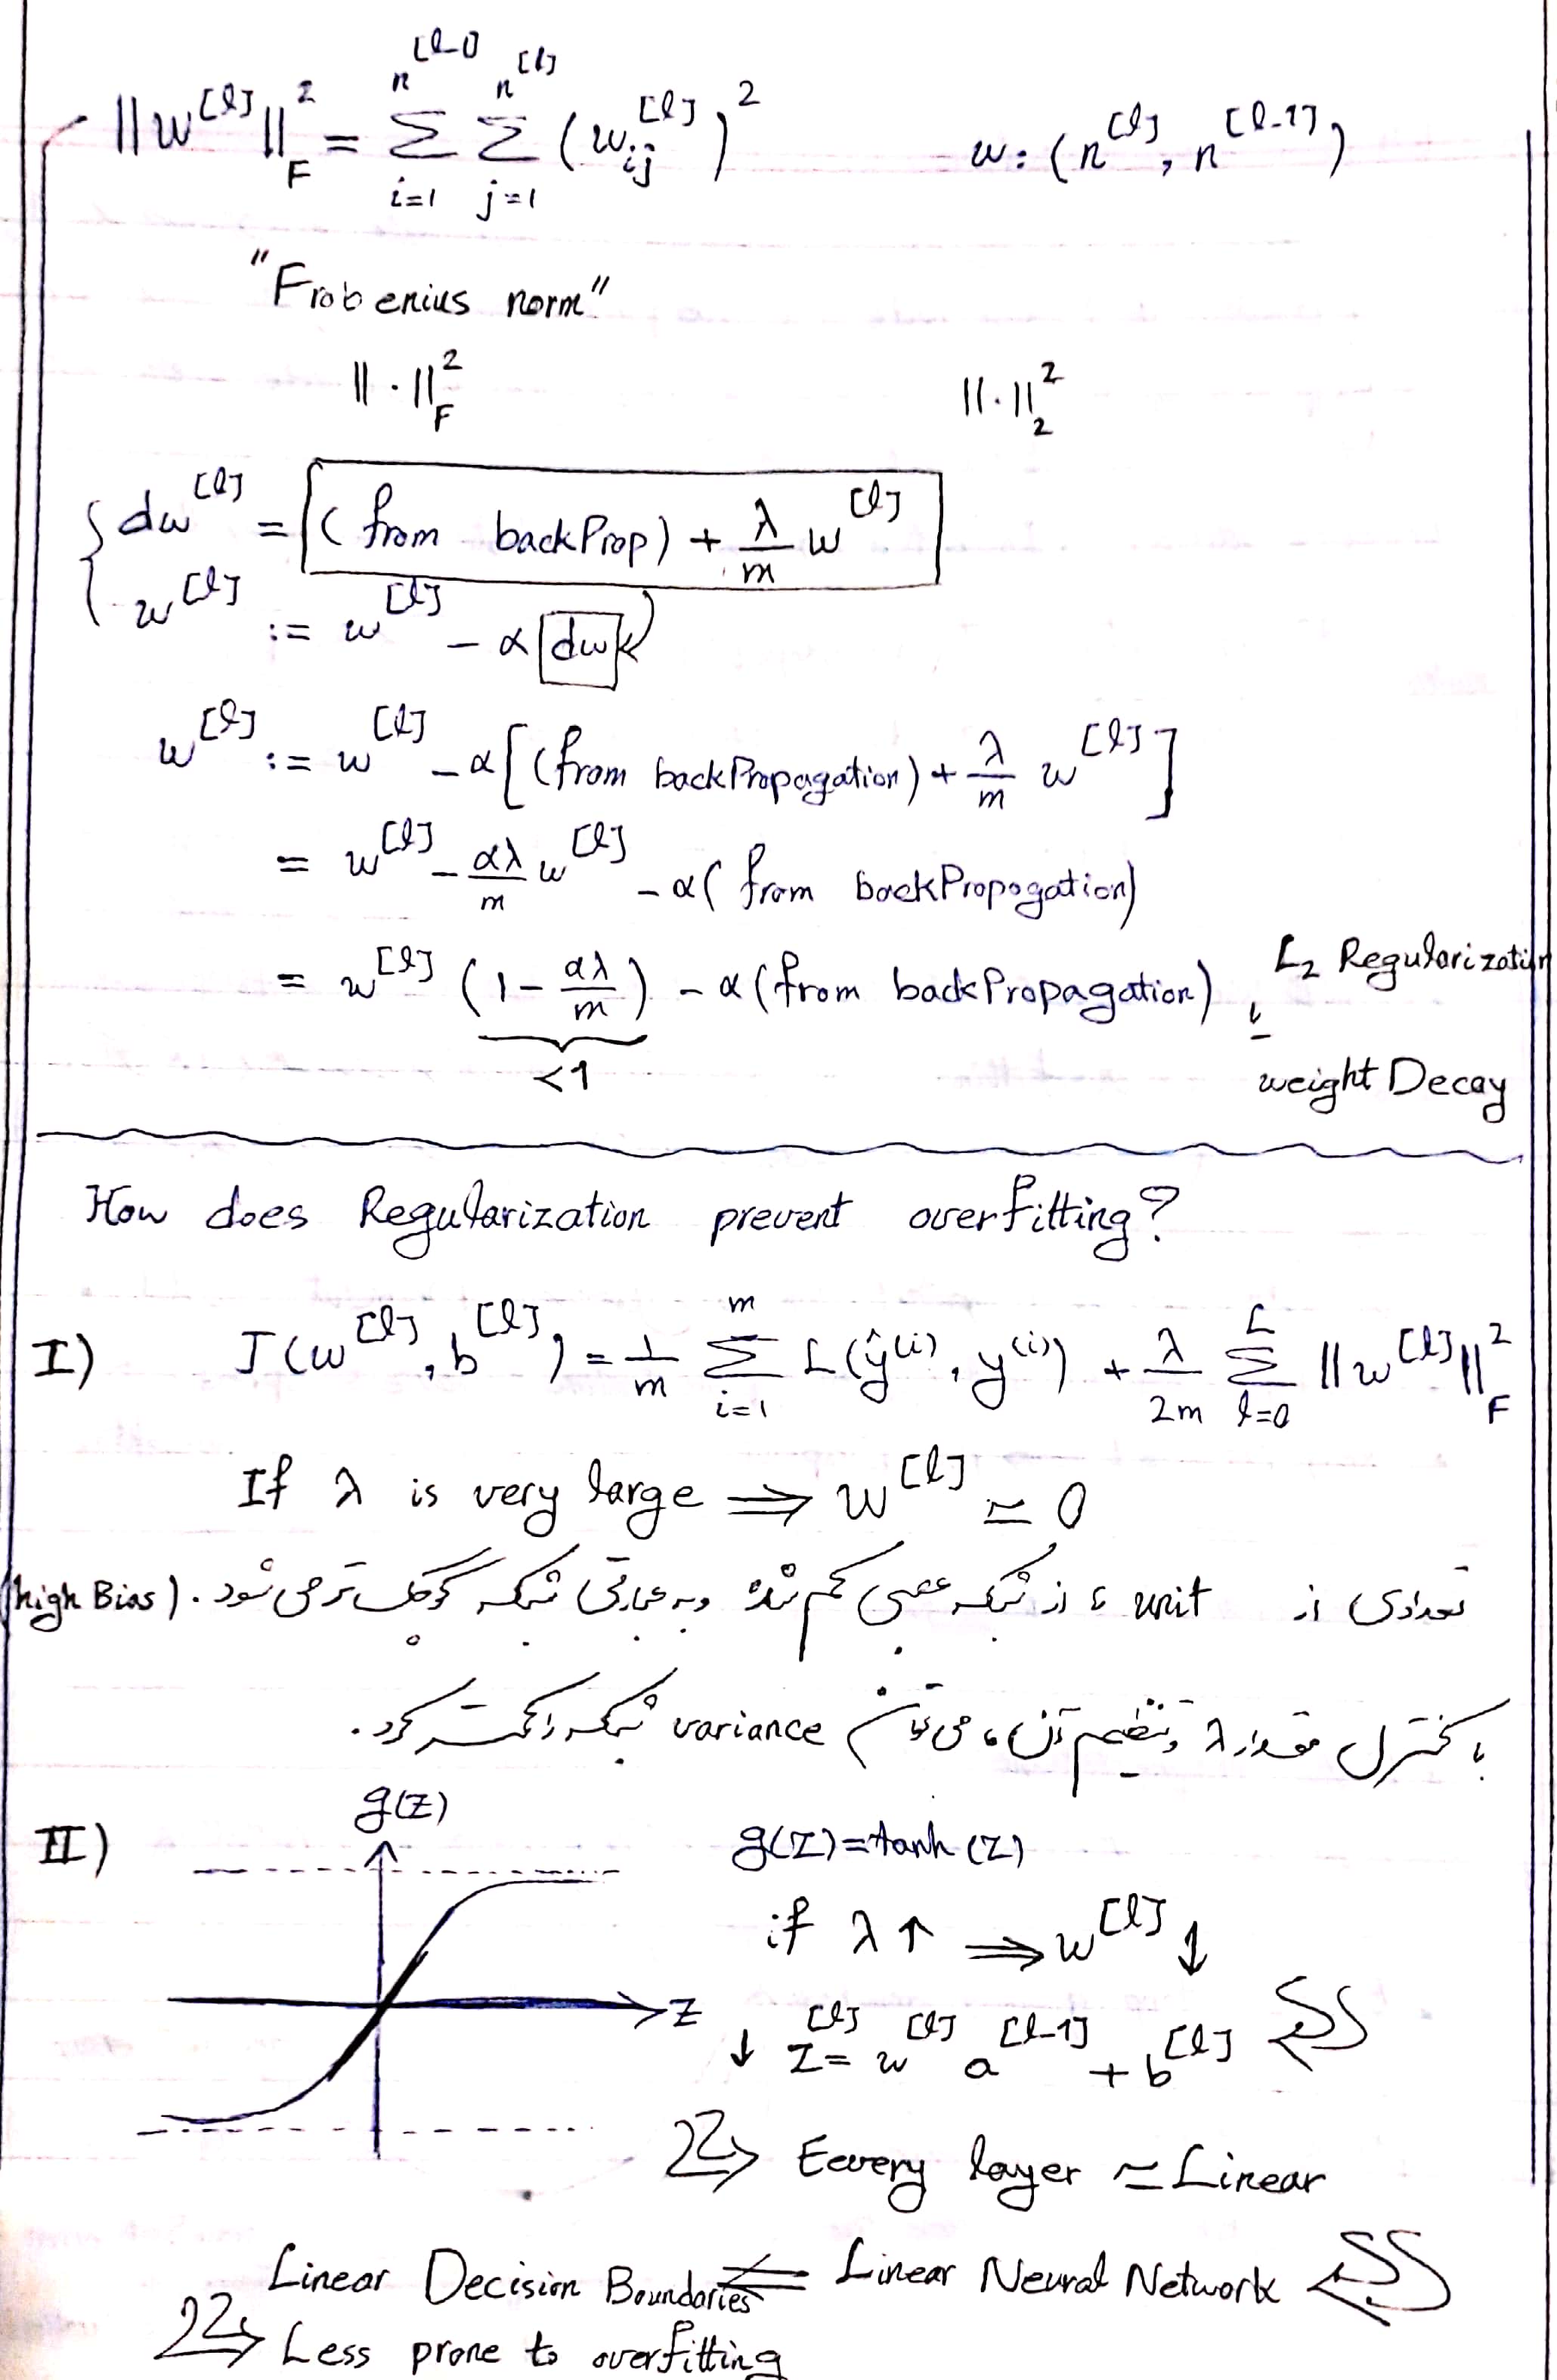 ||w^[l]||²_F = Σ_{i=1}^{n^[l-1]} Σ_{j=1}^{n^[l]} (w_ij^[l])²    w: (n^[l], n^[l-1])
"Frobenius norm"
||·||²_F    ||·||²_2
{ dw^[l] = (from backProp) + λ/m w^[l]
w^[l] := w^[l] - α dw
w^[l] := w^[l] - α[(from backPropagation) + λ/m w^[l]]
= w^[l] - αλ/m w^[l] - α(from backPropogation)
= w^[l] (1 - αλ/m) - α(from backPropagation)
<1
L₂ Regularization
یا
weight Decay
How does Regularization prevent overfitting?
I) J(w^[l], b^[l]) = 1/m Σ_{i=1}^{m} L(ŷ^(i), y^(i)) + λ/2m Σ_{l=0}^{L} ||w^[l]||²_F
If λ is very large ⟹ w^[l] ≃ 0
تعدادی از unit ها از شبکه عصبی کم شده و به عبارتی شبکه کوچک تر می شود. (high Bias)
با کنترل مقدار λ و تنظیم آن، می توان variance شبکه را کمتر کرد.
II) g(z)
z
g(z) = tanh(z)
if λ↑ ⟹ w^[l] ↓
↓ z^[l] = w^[l] a^[l-1] + b^[l]
⟹ Eevery layer ≃ Linear
Linear Decision Boundaries ⟸ Linear Neural Network
⟹ Less prone to overfitting